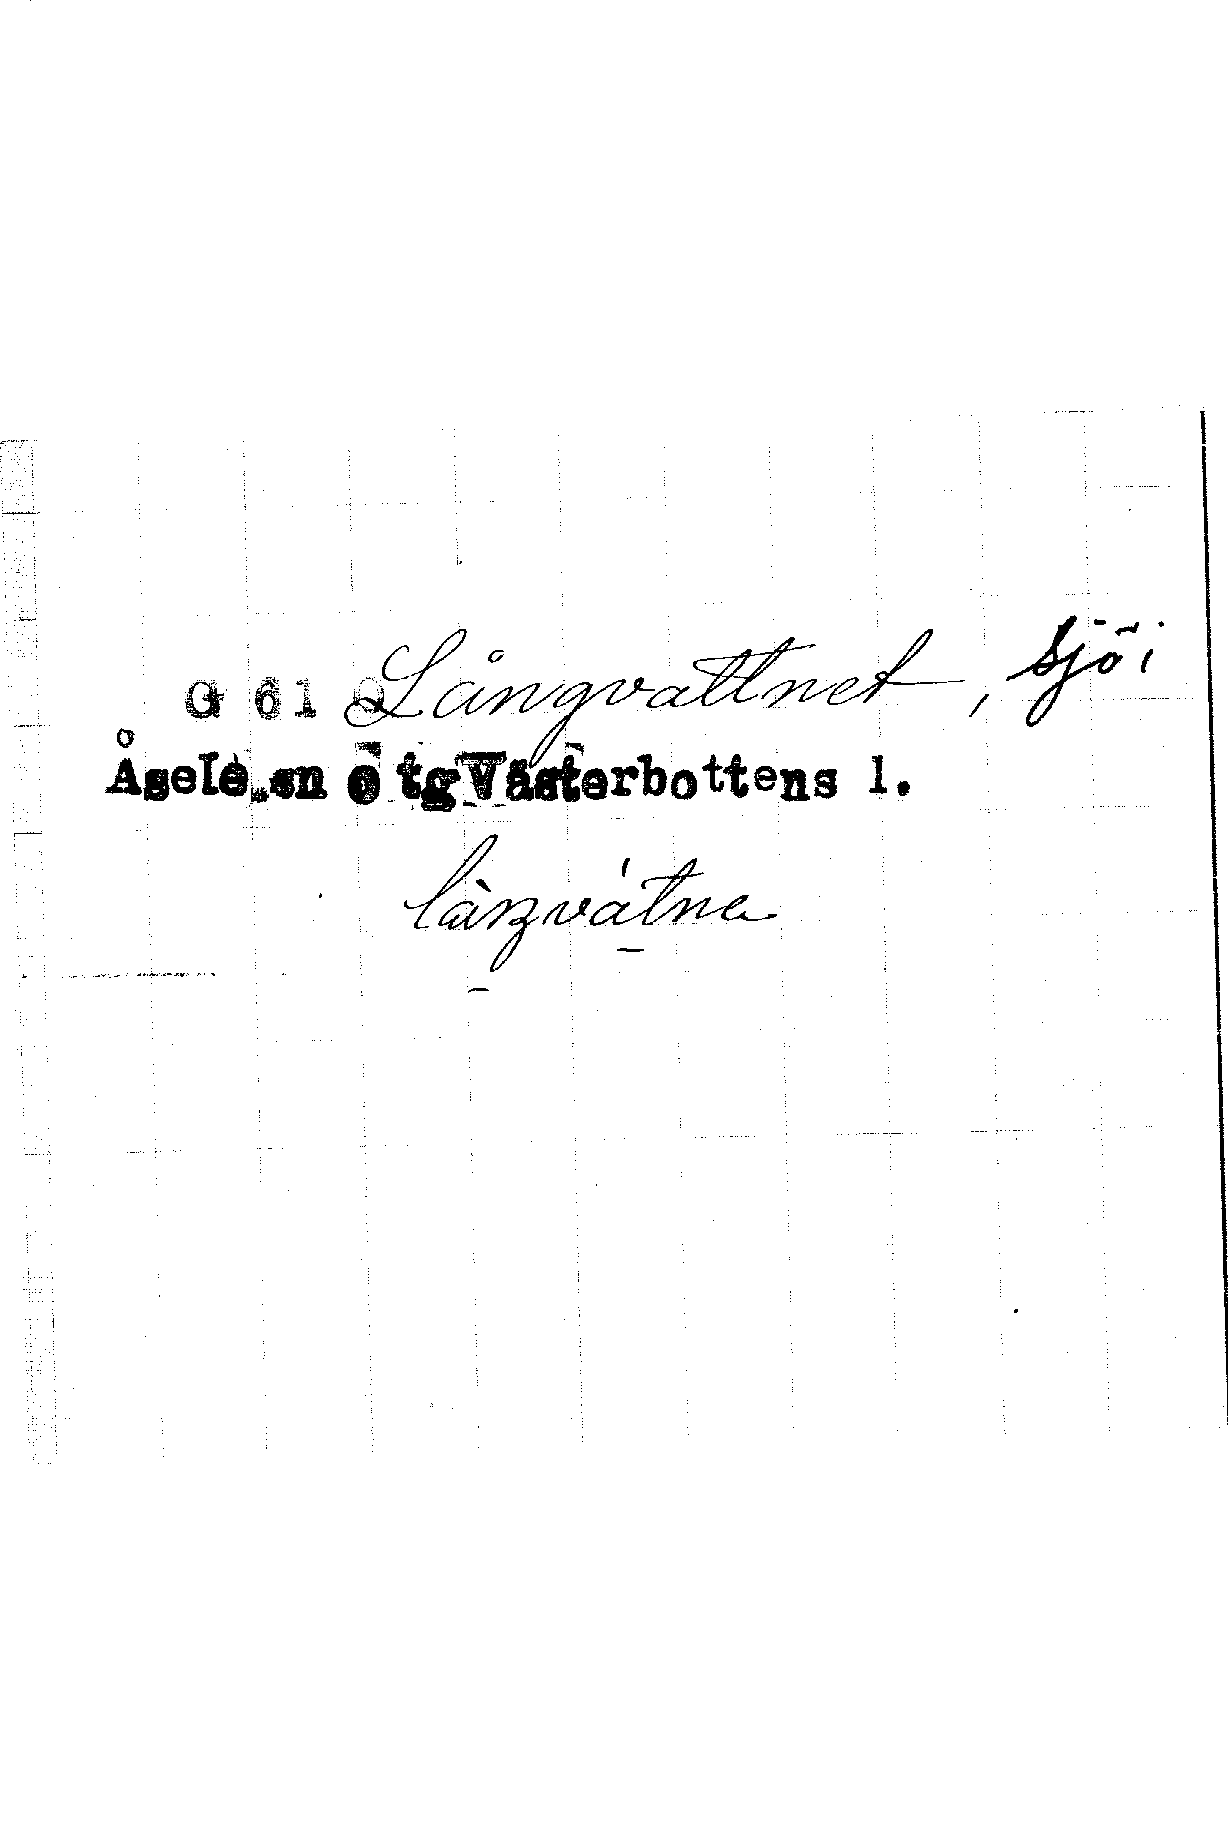 G 61 Långvattnet, sjö i
Åsele sn o tg Västerbottens l.